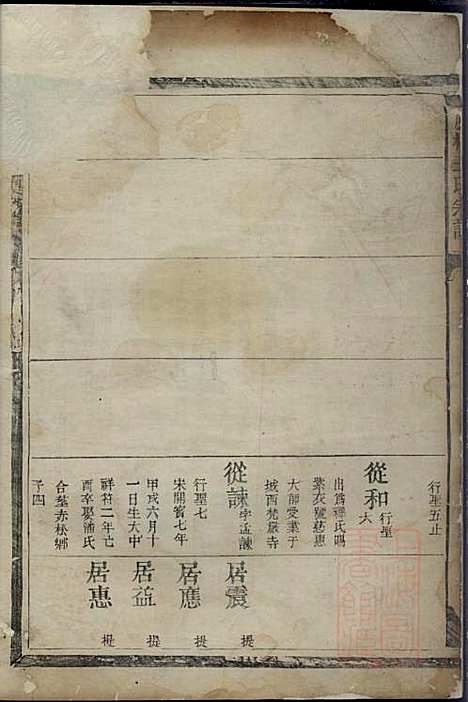 行聖五止
從和 行聖六
出爲釋氏賜
紫衣號慈惠
大師受業于
城西梵嚴寺
從諫 字孟諫
行聖七
宋開寶七年
甲戌六月十
一日生大中
祥符二年己
酉卒娶潘氏
合塟赤松鄉
子四
居震 提
居應 提
居益 提
居惠 提